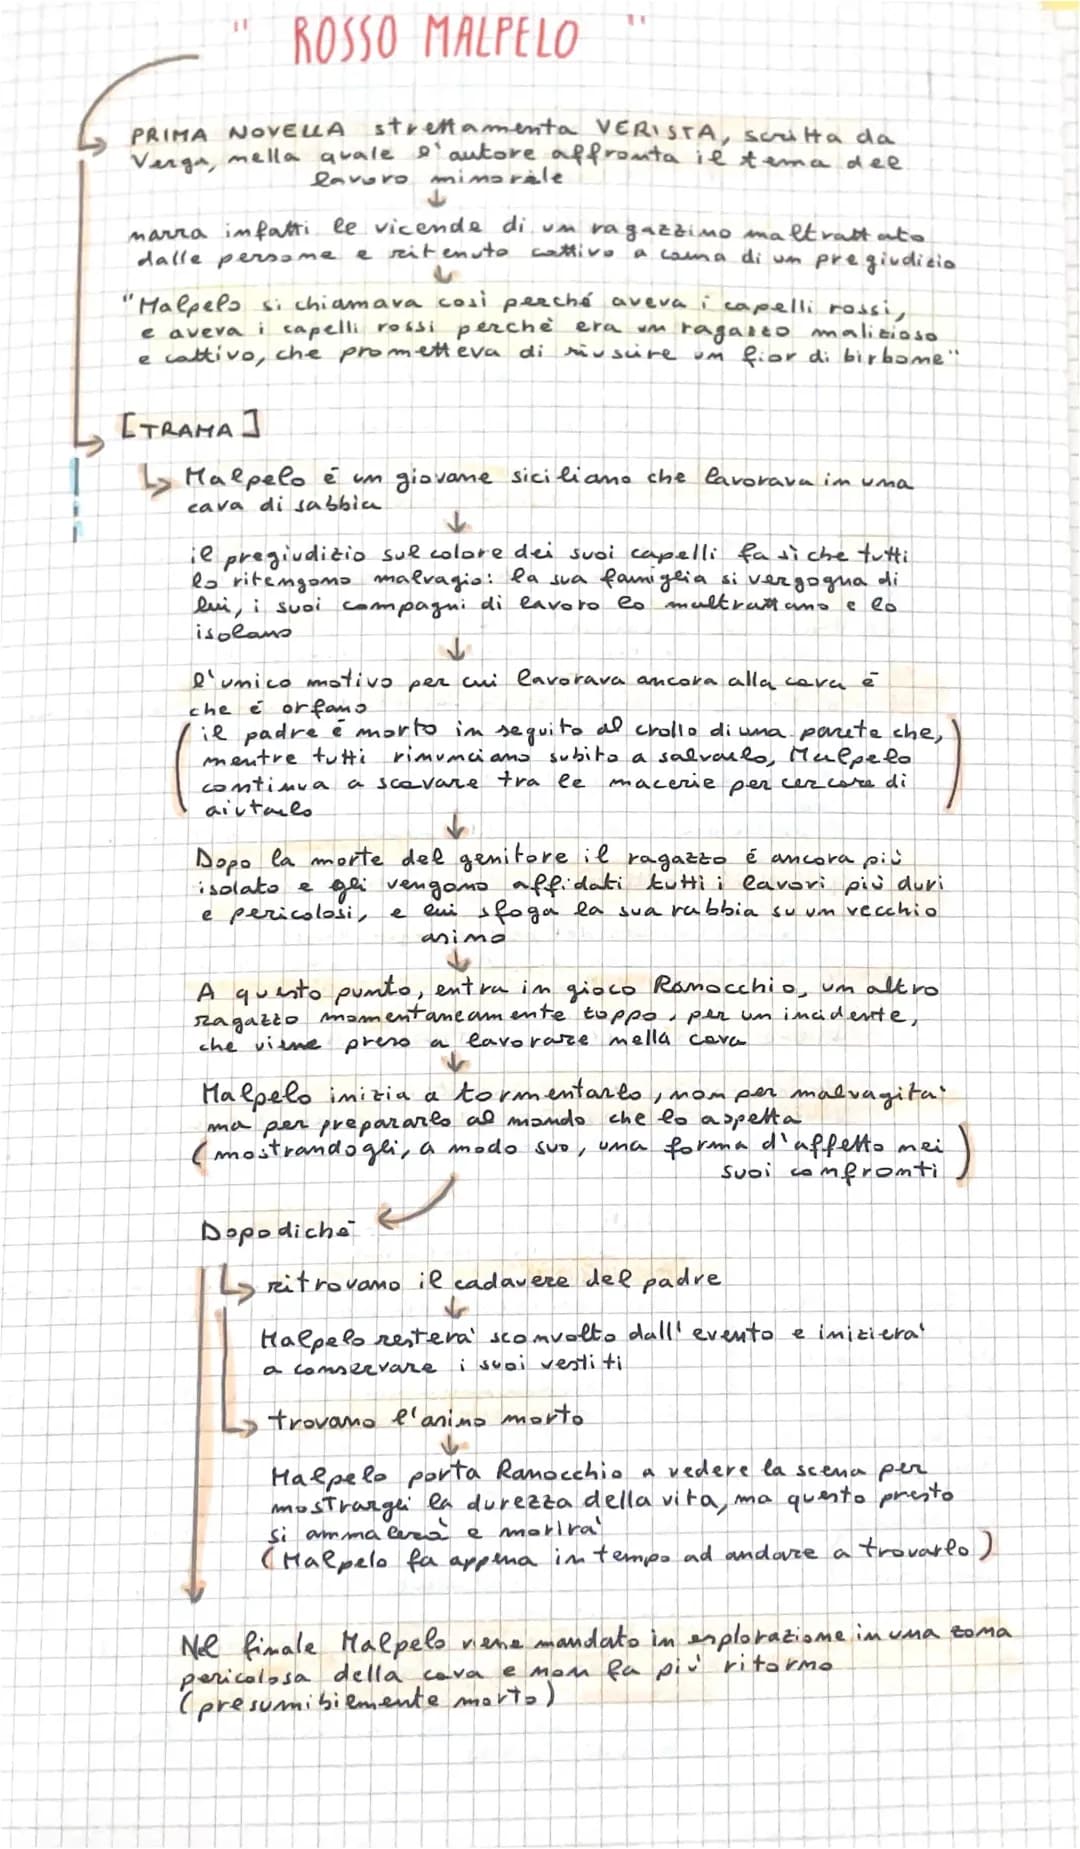 " ROSSO MALPELO "
PRIMA NOVELLA strettamenta VERISTA, scritta da
Verga, nella quale l'autore affronta il tema del
lavoro minorile
↓
narra infatti le vicende di un ragazzino maltrattato
dalle persone e ritenuto cattivo a causa di un pregiudizio
↓
"Malpelo si chiamava così perché aveva i capelli rossi,
e aveva i capelli rossi perchè era un ragazzo malizioso
e cattivo, che prometteva di riuscire un fior di birbone"
[TRAMA]
Malpelo é un giovane siciliano che lavorava in una
cava di sabbia
↓
il pregiudizio sul colore dei suoi capelli fa sì che tutti
lo ritengono malvagio: la sua famiglia si vergogna di
lui, i suoi compagni di lavoro lo maltrattano e lo
isolano
↓
l'unico motivo per cui lavorava ancora alla cava é
che é orfano
(il padre é morto in seguito al crollo di una parete che,
mentre tutti rinunciano subito a salvarlo, Malpelo
continua a scavare tra le macerie per cercare di
aiutarlo)
↓
Dopo la morte del genitore il ragazzo é ancora più
isolato e gli vengono affidati tutti i lavori più duri
e pericolosi, e lui sfoga la sua rabbia su un vecchio
asino
↓
A questo punto, entra in gioco Ranocchio, un altro
ragazzo momentaneamente toppo, per un incidente,
che viene preso a lavorare nella cava
↓
Malpelo inizia a tormentarlo, non per malvagita'
ma per prepararlo al mondo che lo aspetta
(mostrandogli, a modo suo, una forma d'affetto nei
suoi confronti)
Dopodiché
ritrovano il cadavere del padre
↓
Malpelo restera' sconvolto dall'evento e iniziera'
a conservare i suoi vestiti
trovano l'asino morto
↓
Malpelo porta Ranocchio a vedere la scena per
mostrargli la durezza della vita, ma questo presto
si ammalerà e morira'
(Malpelo fa appena in tempo ad andare a trovarlo)
Nel finale Malpelo viene mandato in esplorazione in una zona
pericolosa della cava e non fa più ritorno
(presumibilmente morto)